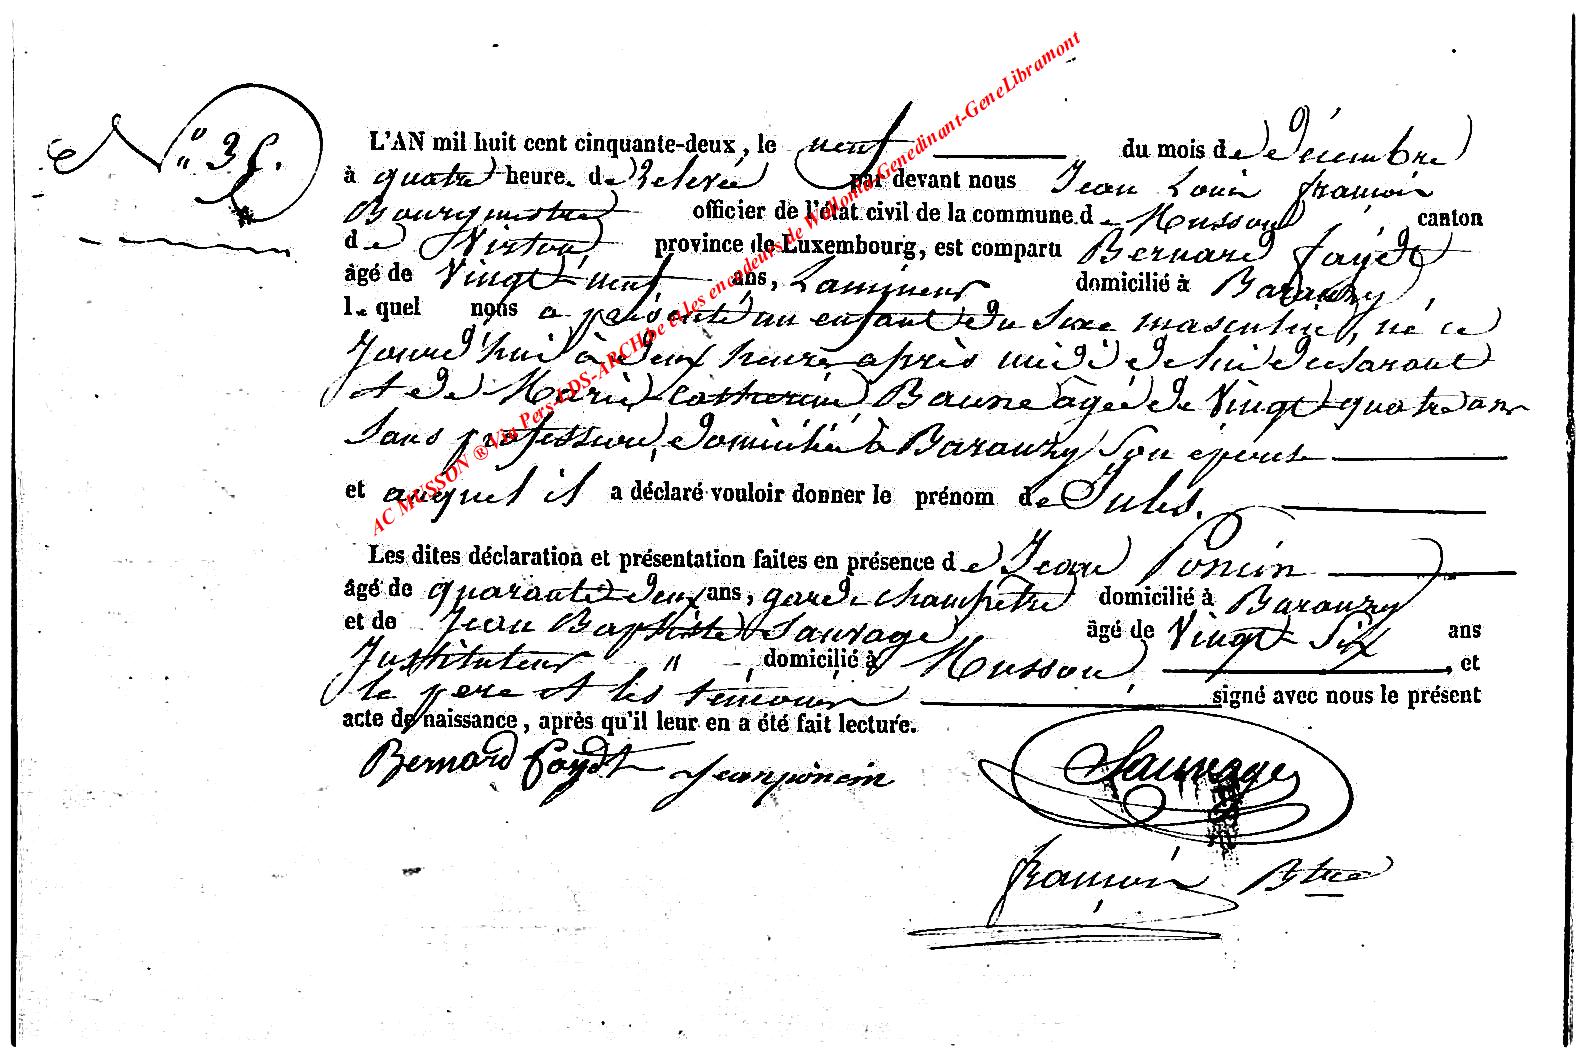 N° 35.
L'AN mil huit cent cinquante-deux, le neuf du mois de Décembre
à quatre heure. de Relevée par devant nous Jean Louis françois
Bourgmestre officier de l'état civil de la commune de Musson, canton
de Virton, province de Luxembourg, est comparu Bernard faydt
âgé de Vingt-neuf ans, Lamineur domicilié à Baranzy,
lequel nous a présenté un enfant du sexe masculin, né ce
Jourd'hui à deux heures après midi de lui déclarant
et de Marie Catherine Baune âgée de Vingt-quatre ans
Sans profession, domiciliée à Baranzy Son épouse
et auquel il a déclaré vouloir donner le prénom de Jules.
Les dites déclaration et présentation faites en présence de Jean Poncin
âgé de quarante-deux ans, garde champêtre domicilié à Baranzy
et de Jean Baptiste Sauvage âgé de Vingt Six ans
Instituteur " , domicilié à Musson, et
le père et les témoins signé avec nous le présent
acte de naissance, après qu'il leur en a été fait lecture.
Bernard faydt Jean poncin Sauvage
françois Btre
AC MUSSON ® Via Pers-LDS-ARCH.be et les encodeurs de Wallonia-Genedinant-GeneLibramont